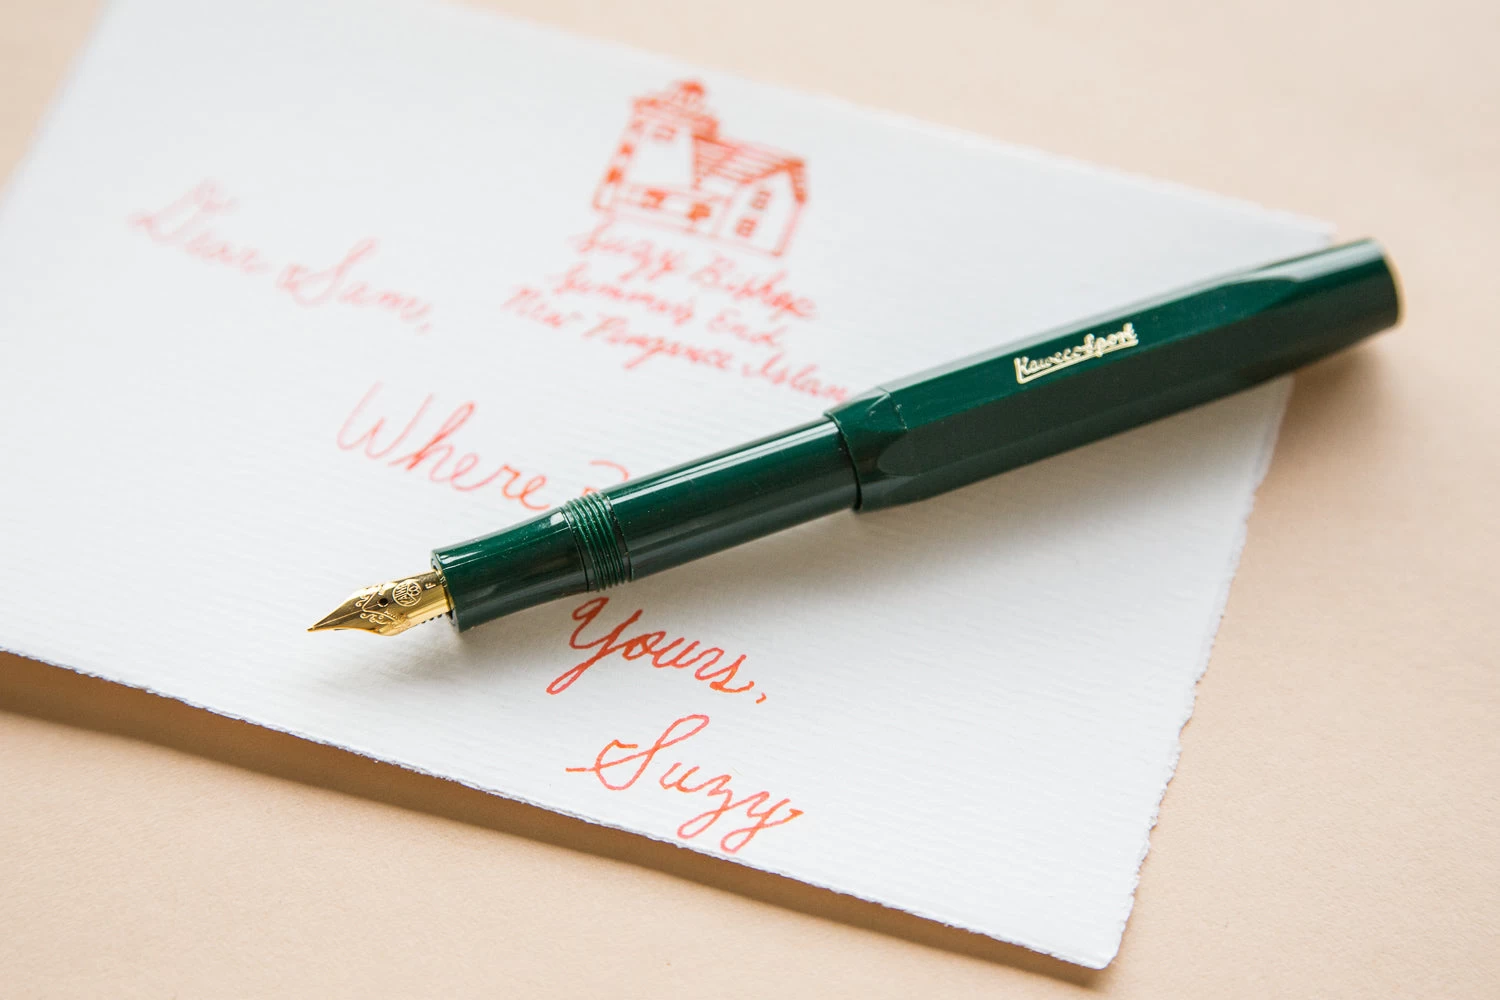 Suzy Bishop
Summer's End
New Penzance Islan
Dear Sam,
Where?
Kaweco Sport
F
Yours,
Suzy